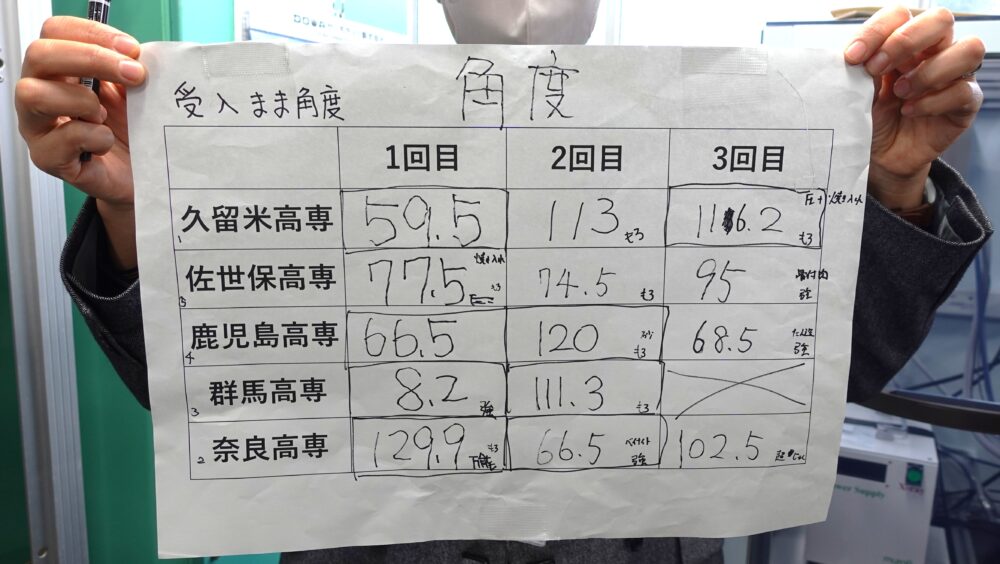 角度
受入まま角度
1回目 2回目 3回目
1 久留米高専 59.5 113 もろ 116.2 もろ 圧+焼き入れ
5 佐世保高専 77.5 焼き入れ 74.5 もろ 95 強
4 鹿児島高専 66.5 120 もろ 68.5 強
3 群馬高専 8.2 強 111.3 もろ
2 奈良高専 129.9 もろ 66.5 ベイナイト 強 102.5
Power Supply